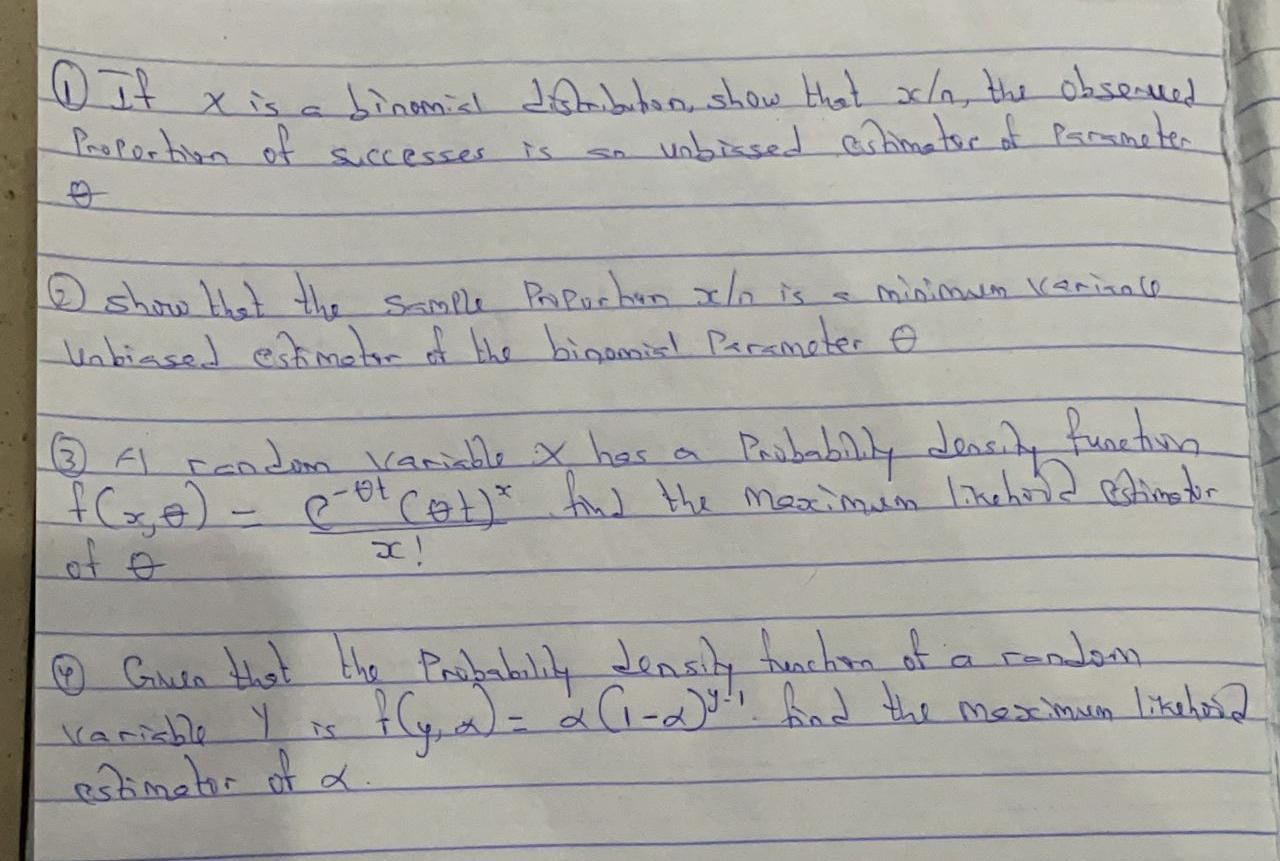 ① If x is a binomial distribution, show that x/n, the observed
Proportion of successes is an unbiased estimator of Parameter
θ
② show that the sample Proportion x/n is a minimum variance
unbiased estimator of the binomial Parameter θ
③ A random variable x has a Probability density function
f(x,θ) = e^{-θt} (θt)^x / x! . find the maximum likehood estimator
of θ
④ Given that the Probability density function of a random
variable Y is f(y,α) = α(1-α)^{y-1}. find the maximum likehood
estimator of α.